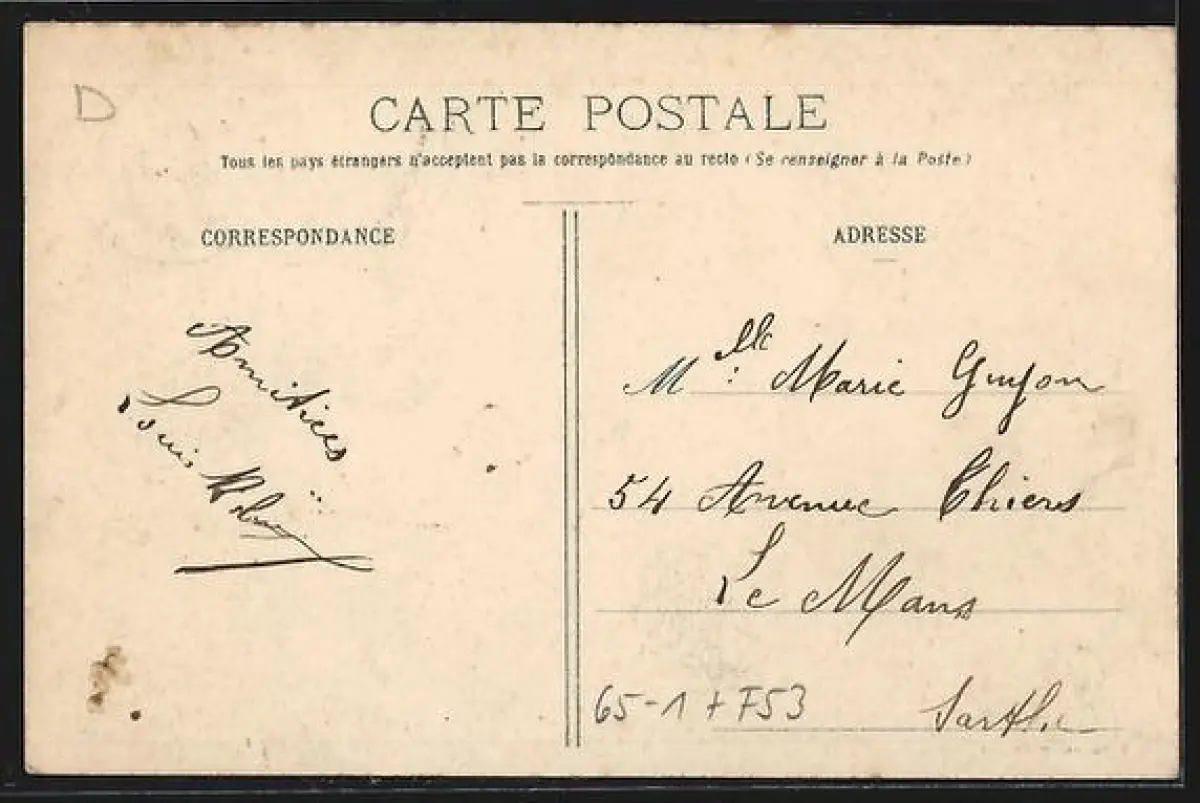 D
CARTE POSTALE
Tous les pays étrangers n'acceptent pas la correspondance au recto (Se renseigner à la Poste)
CORRESPONDANCE
Amitiées
Louis
ADRESSE
Mlle Marie Guyon
54 Avenue Thiers
Le Mans
Sarthe
65-1+F53